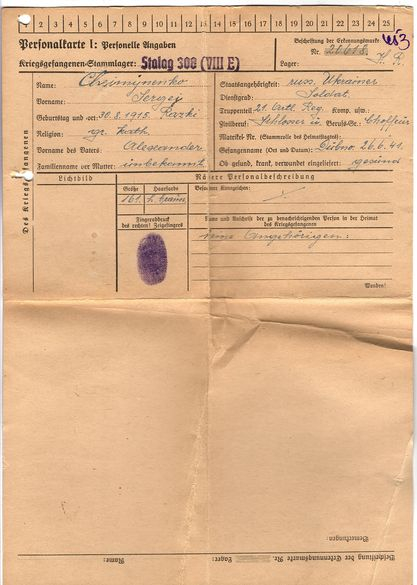 1 2 3 4 5 6 7 8 9 10 11 12 13 14 15 16 17 18 19 20 21 22 23 24 25
Personalkarte I: Personelle Angaben
Beschriftung der Erkennungsmarke
Nr. 21618
Kriegsgefangenen-Stammlager: Stalag 308 (VIII E)
Lager:
Des Kriegsgefangenen
Name:
Vorname: Sergej
Geburtstag und -ort: 30.8.1915.
Religion: gr. kath.
Vorname des Vaters: Alexander
Familienname der Mutter: unbekannt
Staatsangehörigkeit: russ. Ukrainer
Dienstgrad: Soldat
Truppenteil: 21. Artl. Reg. Komp. usw.:
Zivilberuf: Schlosser u. Berufs-Gr.: Chauffeur
Matrikel Nr. (Stammrolle des Heimatstaates):
Gefangennahme (Ort und Datum): Dubno 26.6.41.
Ob gesund, krank, verwundet eingeliefert: gesund
Lichtbild
Nähere Personalbeschreibung
Größe
Haarfarbe
Besondere Kennzeichen:
161.
Fingerabdruck
des rechten! Zeigefingers
Name und Anschrift der zu benachrichtigenden Person in der Heimat
des Kriegsgefangenen
keine Angehörigen.
Wenden!
Bemerkungen:
Beschriftung der Erkennungsmarke Nr.
Lager:
Name: